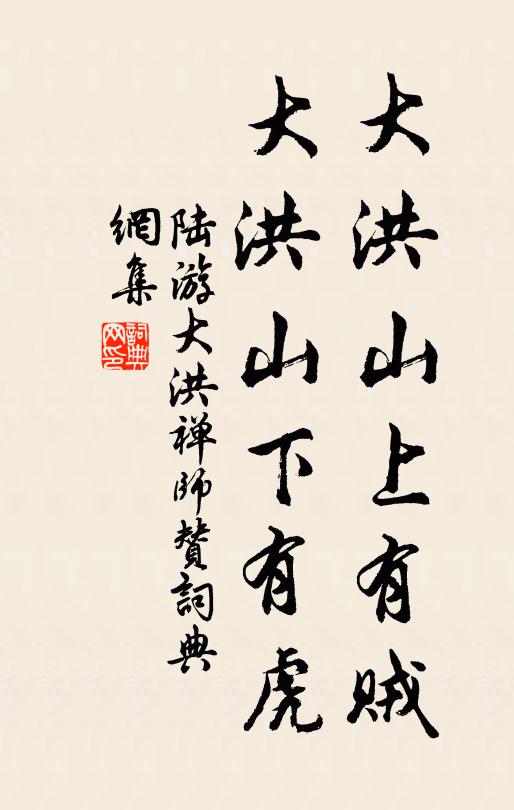 大洪山上有贼
大洪山下有虎
陆游大洪禅师赞詞典
網集
詞典
网印